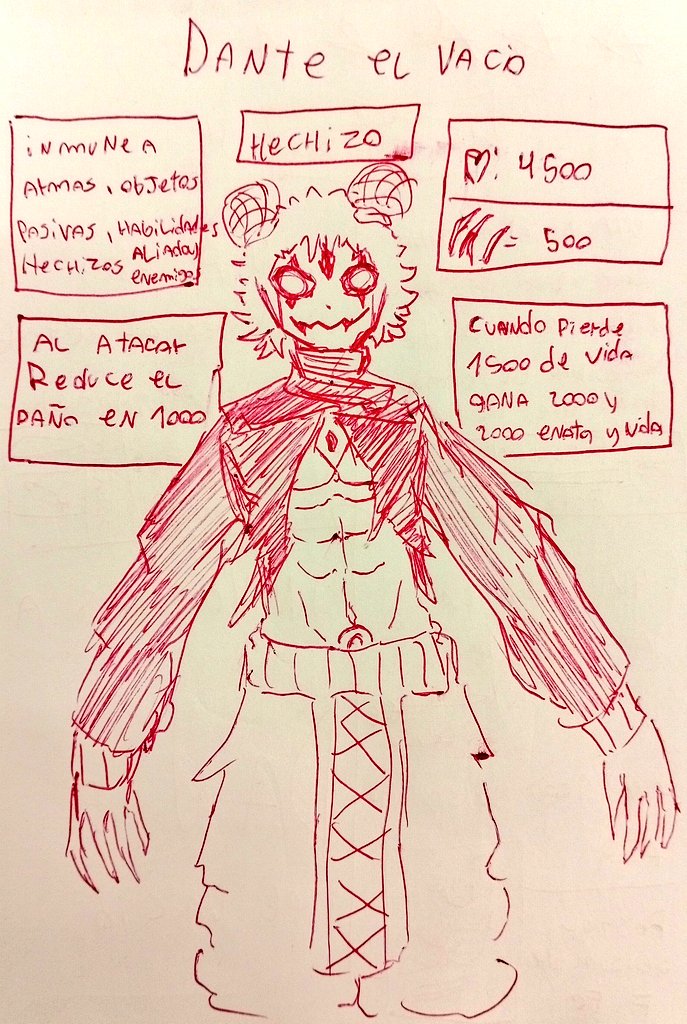 DANte el VACio
iNMUNE A
ArMAS, OBJetos
PASiVAS, HABiLiDADes
HecHizos ALiADou
enemigo
HeCHizo
: 4500
= 500
AL AtACAr
Reduce el
DAÑo eN 1000
CUANDO Pierde
1500 de ViDA
GANA 2000 y
2000 enAtq y Vida